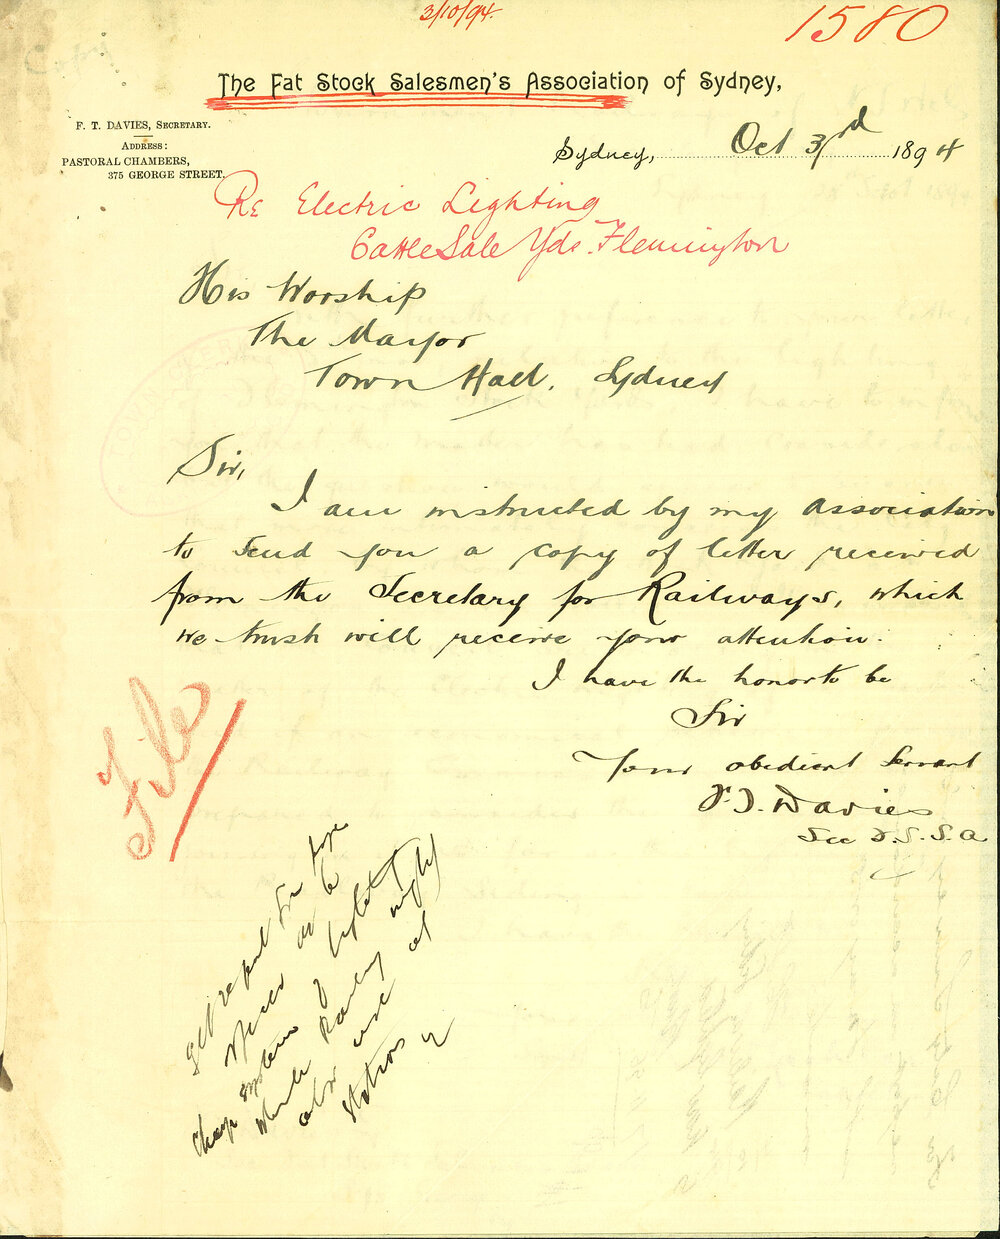 3/10/94.
1580
The Fat Stock Salesmen's Association of Sydney,
F. T. DAVIES, SECRETARY.
ADDRESS:
PASTORAL CHAMBERS,
375 GEORGE STREET,
Sydney, Oct 3rd 1894
Re Electric Lighting
Cattle Sale Yds. Flemington
His Worship
The Mayor
Town Hall, Sydney
Sir,
I am instructed by my Association
to send you a copy of letter received
from the Secretary for Railways, which
we trust will receive your attention.
I have the honor to be
Sir
Your obedient Servant
F. T. Davies
Sec F.S.S.A
File
Get report from
Officer as to
cheap system of light
which Railway might
also use at
Stations